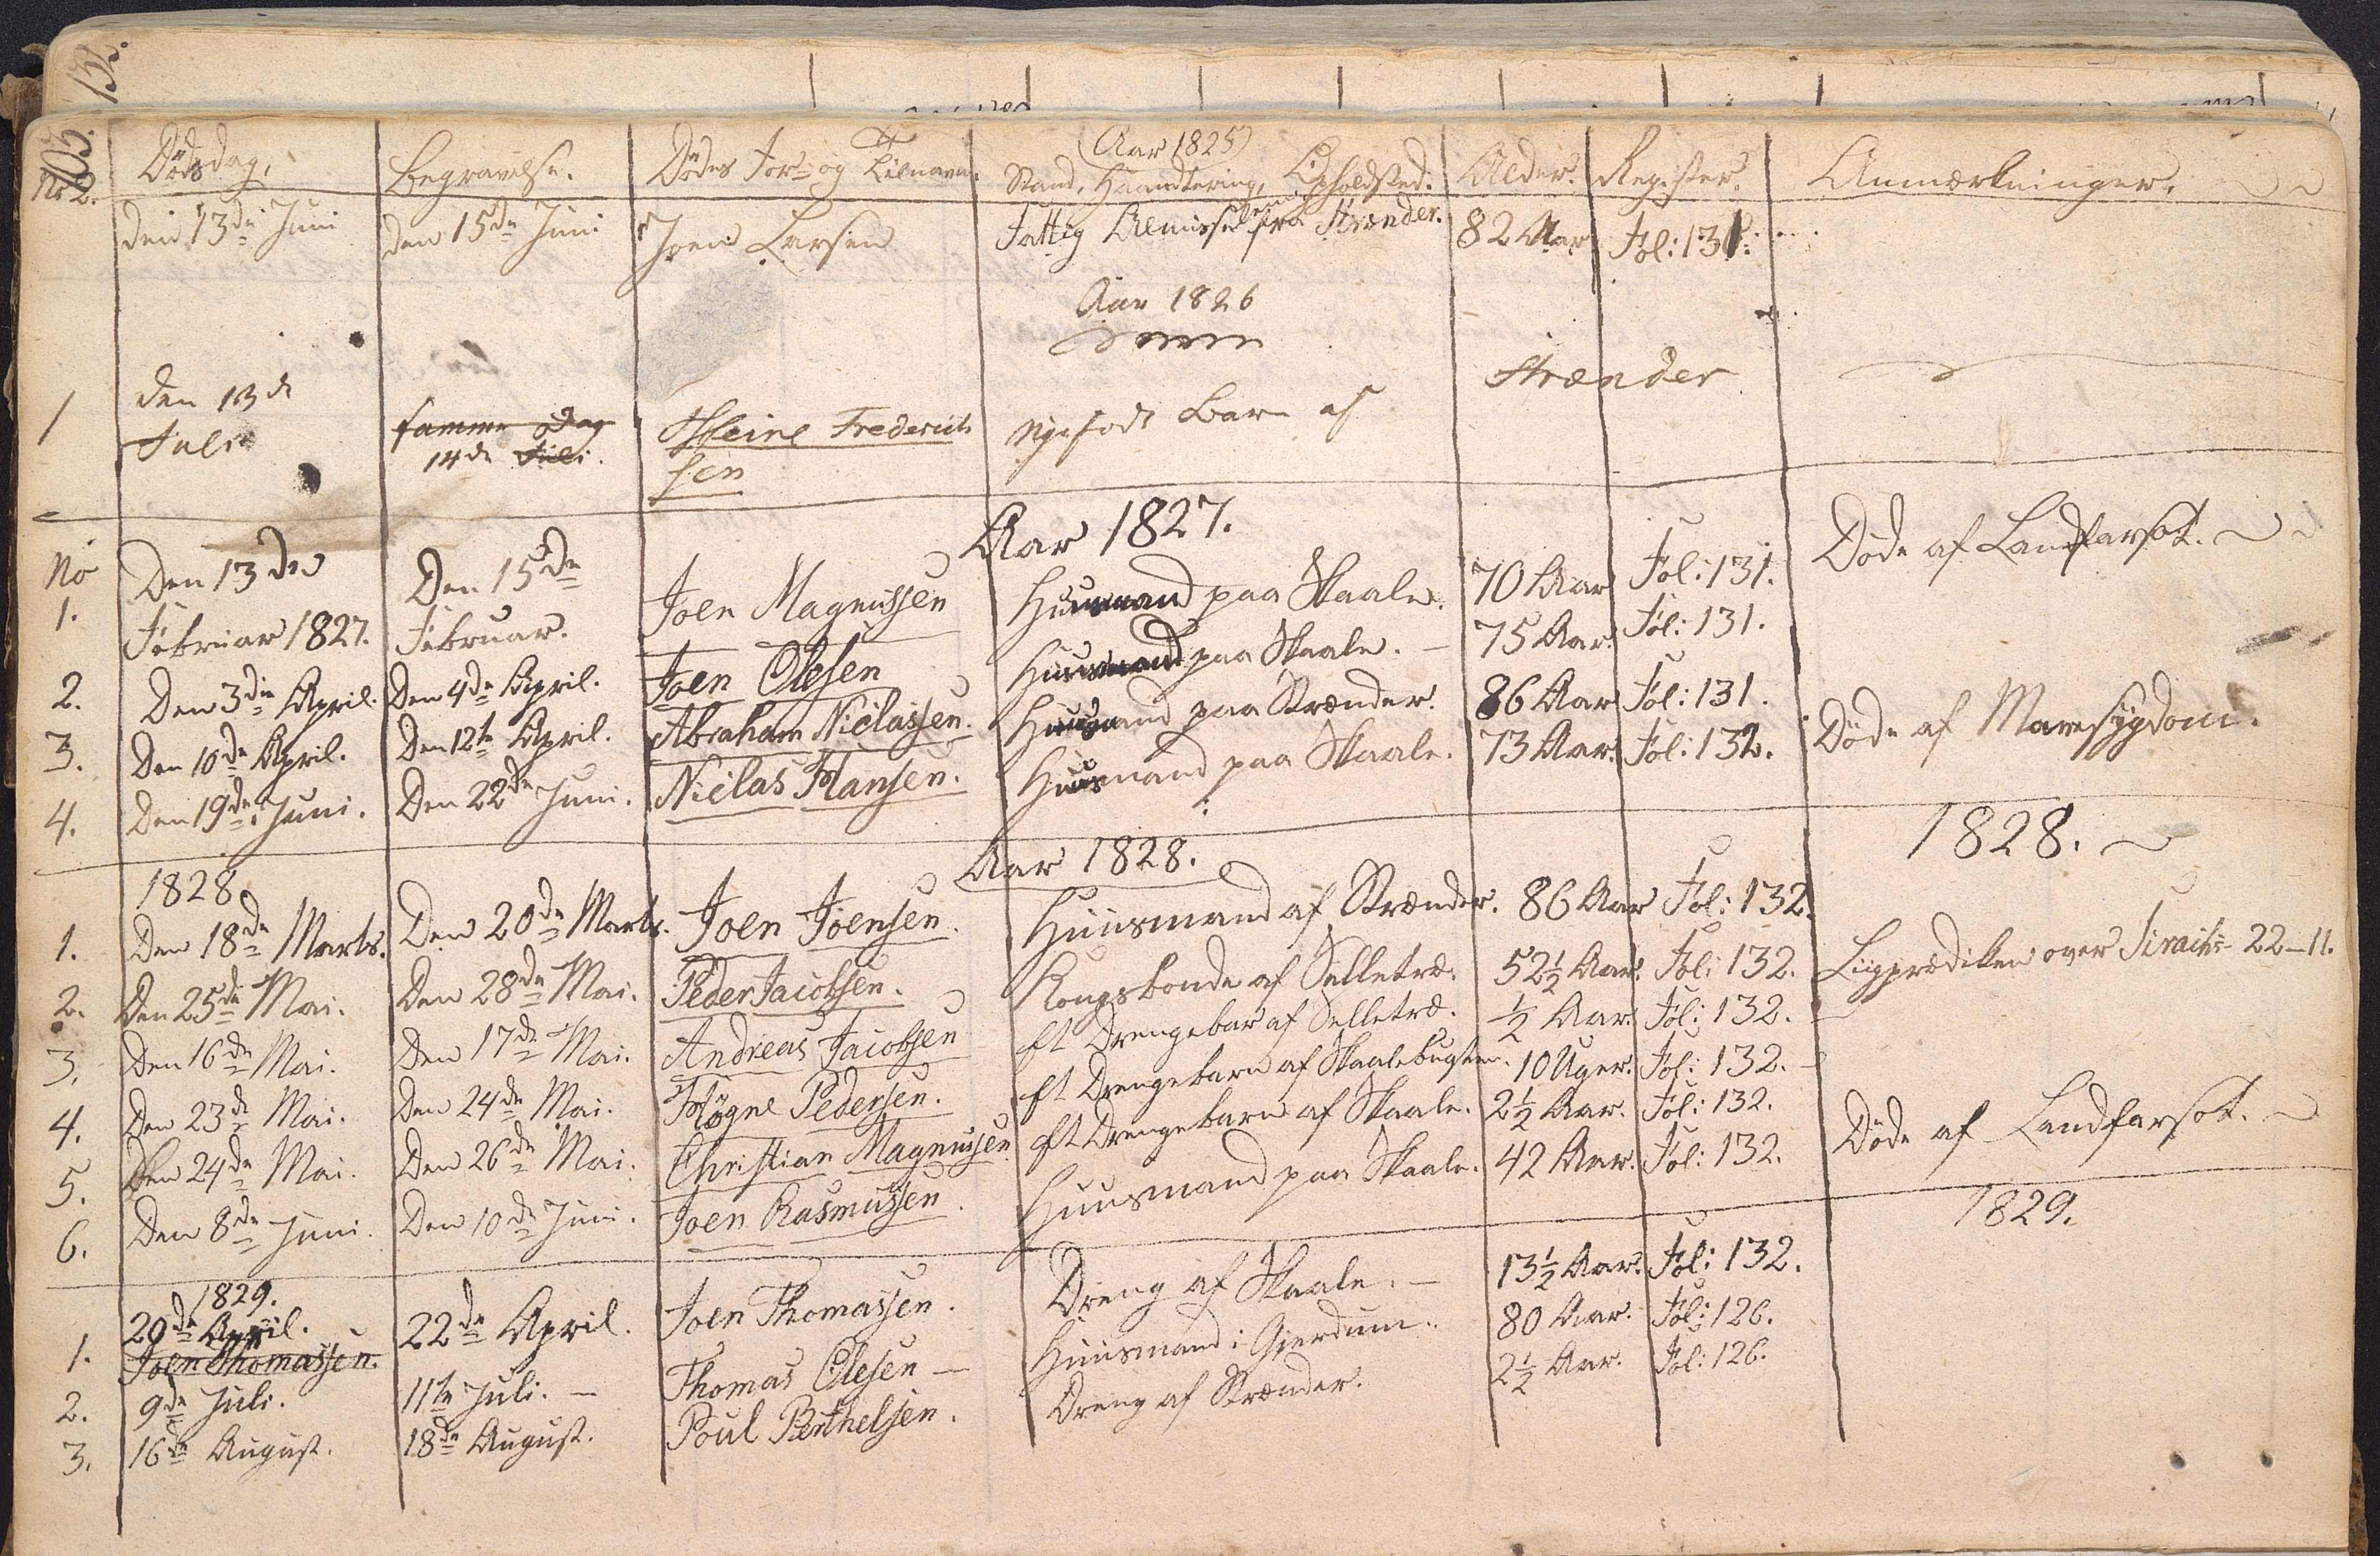 132.
103.
No 2. Dödsdag. Begravelse. Dödes For- og Tilnavn. (Aar 1825) Stand, Haandtering, Opholdsted. Alder. Register. Anmærkninger.
den 13de Juni den 15de Juni Joen Larsen Fattig Almisse fra Strænder. 82 Aar Fol: 131.
Aar 1826
1 den 13de Juli samme Dag Heine Frederich nyefodt Barn af Strænder
14de Juli. sen
Aar 1827.
No 1. Den 13de Den 15de Joen Magnussen Huusmand paa Skaale. 70 Aar Fol: 131. Døde af Landfarsot.
Februar 1827. Februar.
2. Den 3die April. Den 4de April. Joen Olesen Huusmand paa Skaale. – 75 Aar. Fol: 131.
3. Den 10de April. Den 12te April. Abraham Niclassen. Huusmand paa Strænder. 86 Aar Fol: 131.
4. Den 19de Juni. Den 22de Juni. Niclas Hansen. Huusmand paa Skaale. 73 Aar. Fol: 132. Døde af Mavesygdom.
1828 Aar 1828. 1828.
1. Den 18de Marts. Den 20de Marts. Joen Joensen. Huusmand af Strænder. 86 Aar Fol: 132.
2. Den 25de Mai. Den 28de Mai. Peder Jacobsen. Kongsbonde af Selletræ. 52½ Aar. Fol: 132. Liigprædiken over Sirachs 22–11.
3. Den 16de Mai. Den 17de Mai. Andreas Jacobsen et Drengebar af Selletræ. ½ Aar. Fol: 132. –
4. Den 23de Mai. Den 24de Mai. Høgne Pedersen. et Drengebarn af Skaalebugten. 10 Uger. Fol: 132. –
5. Den 24de Mai. Den 26de Mai. Christian Magnussen et Drengebarn af Skaale. 2½ Aar. Fol: 132.
6. Den 8de Juni. Den 10de Juni. Joen Rasmussen. Huusmand paa Skaale. 42 Aar. Fol: 132. Døde af Landfarsot.
1829. 1829.
1. 20de April. 22de April. Joen Thomassen. Dreng af Skaale. – 13½ Aar. Fol: 132.
Joen Thomassen.
2. 9de Juli. 11te Juli. – Thomas Olesen – Huusmand i Gjerdum. 80 Aar. Fol: 126.
3. 16de August. 18de August. Poul Berthelsen. Dreng af Strænder. 2½ Aar. Fol: 126.